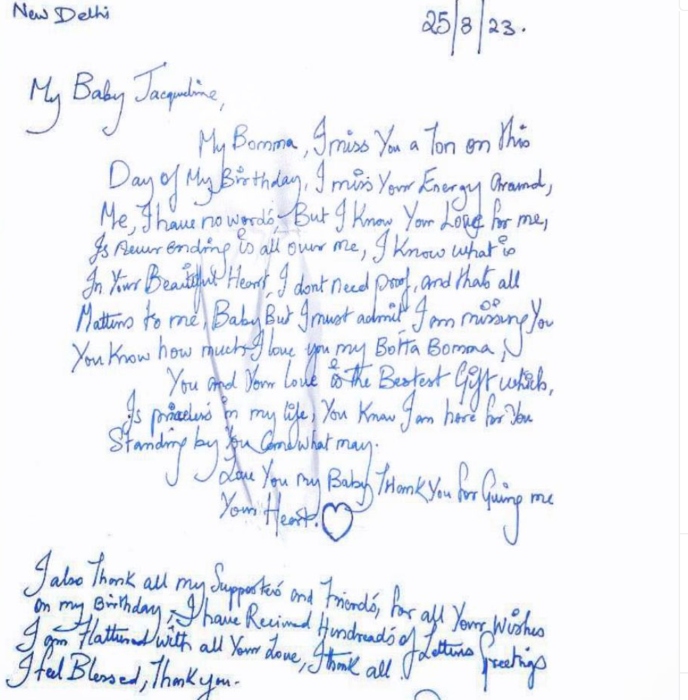 New Delhi
25/3/23.
My Baby Jacqueline,
My Bomma, I miss You a Ton on this
Day of My Birthday, I miss Your Energy Around,
Me, I have no words, But I Know Your Love for me,
Is Never ending is all over me, I Know what is
In Your Beautiful Heart, I dont need proof, and thats all
Matters to me, Baby But I must admit I am missing You
You Know how much I love you my Botta Bomma,
You and Your Love is the Bestest Gift which,
Is priceless in my life, You Know I am here for You
Standing by You Come what may.
Love You my Baby Thank You for Giving me
Your Heart.
I also Thank all my Supporters and Friends, for all Your Wishes
on my Birthday, I have Recived Hundreads of Letters Greetings
I am Flattered with all Your Love, I thank all.
I feel Blessed, Thank you.